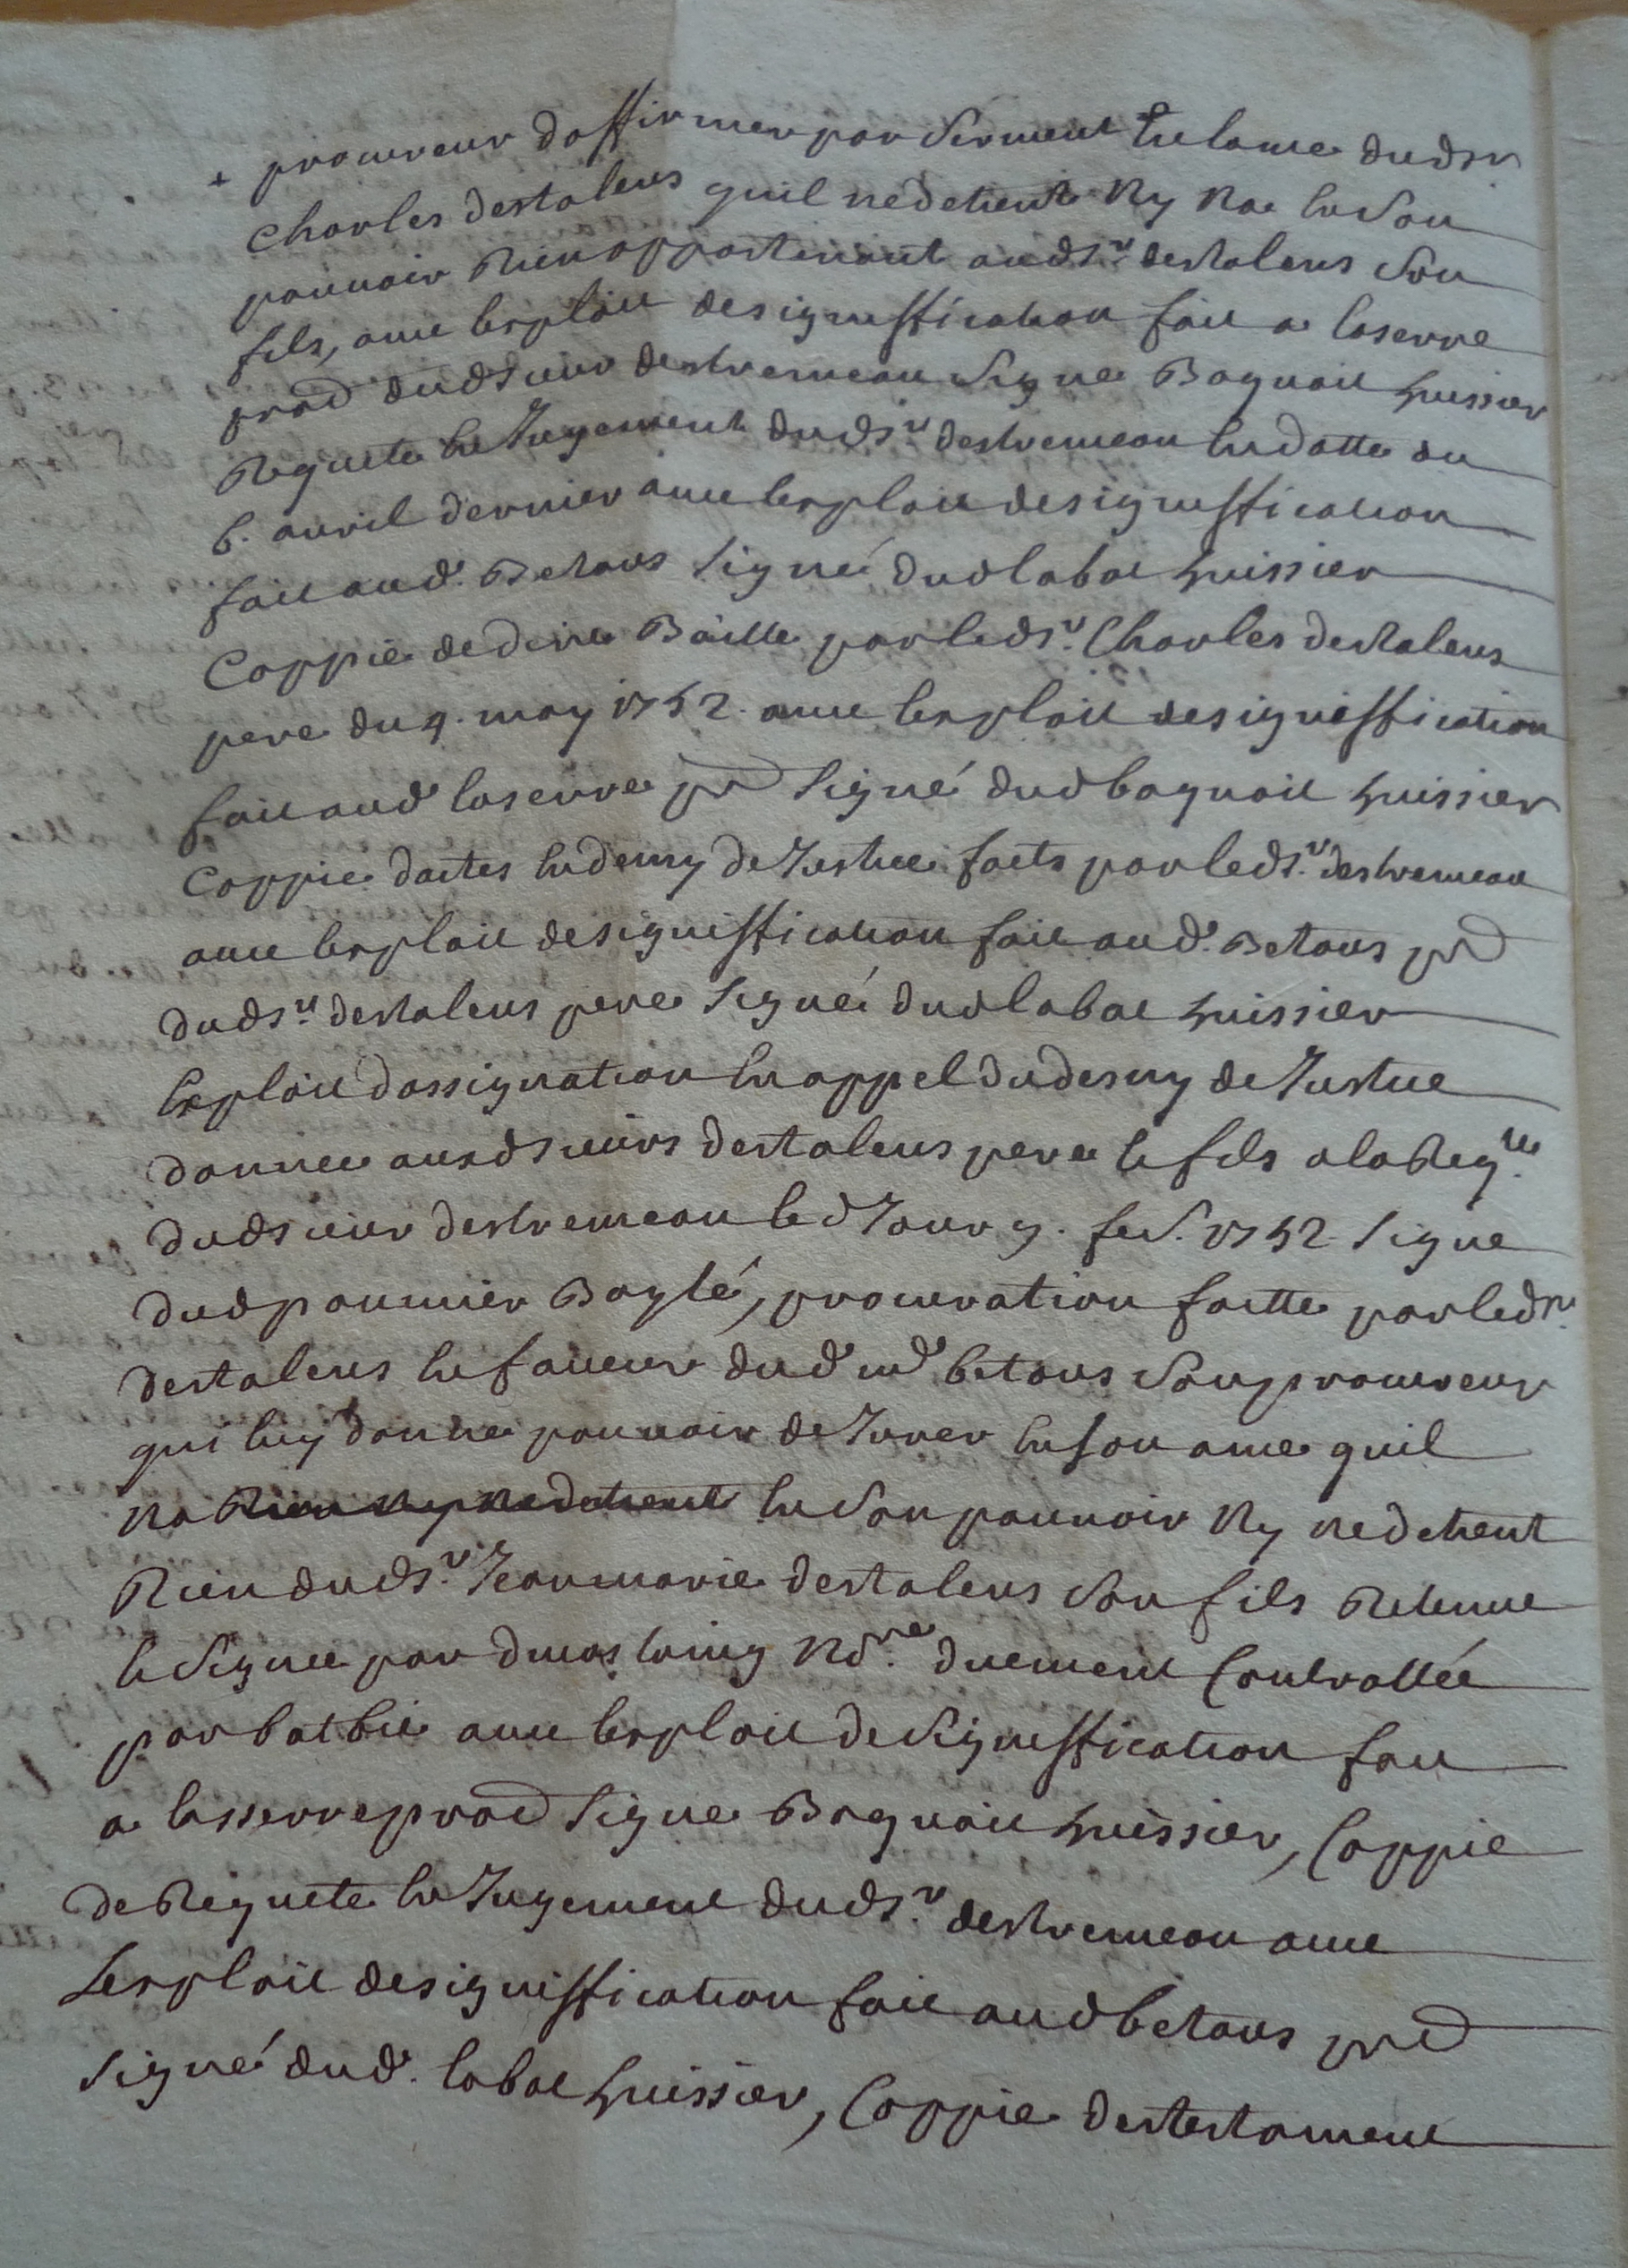 + procureur daffirmer par serment en lame dudsr
Charles destalens quil nedetient ny na en son
pouvoir Rien appartenant audsr. destalens son
fils, avec lexploit designiffication fait a laserre
procr dudsieur destremeau signe Baquoit huissier
Requete en Jugement dudsr. destremeau en datte du
6. avril dernier avec lexploit designiffication
fait aud. Betous signé dudlabat huissier
Coppie dedire Baille parledsr. Charles destalens
pere du 4. may 1752. avec lexploit designiffication
fait aud laserre pr signé dudbaquoit huissier
Coppie dactes endemy de Justice faits parledsr. destremeau
avec lexploit designiffication fait aud. Betous pr
dudsr. destalens pere signé dudlabat huissier
Exploit dassignation en appel dudesny de Justice
donnee auxdsieurs destalens pere et fils alaReqte.
dudsieur destremeau led Jour 9. fev. 1752. signe
dudpaumier Baylé, procuration faitte parledsr.
destalens en faveur dud md betous son procureur
qui luy donne pouvoir de Jurer en son ame quil
na en son pouvoir Ny nedetient
Rien dudsr. Jeanmarie destalens son fils Retenue
et signee par duos laing Nore. duement Controllée
par batbie avec lexploit de signiffication fait
a lasserre procr signe Baquoit huissier, Coppie
de Requete en Jugement dudsr. destremeau avec
Lexploit designiffication fait audbetous pr
signé dud. labat huissier, Coppie destestament